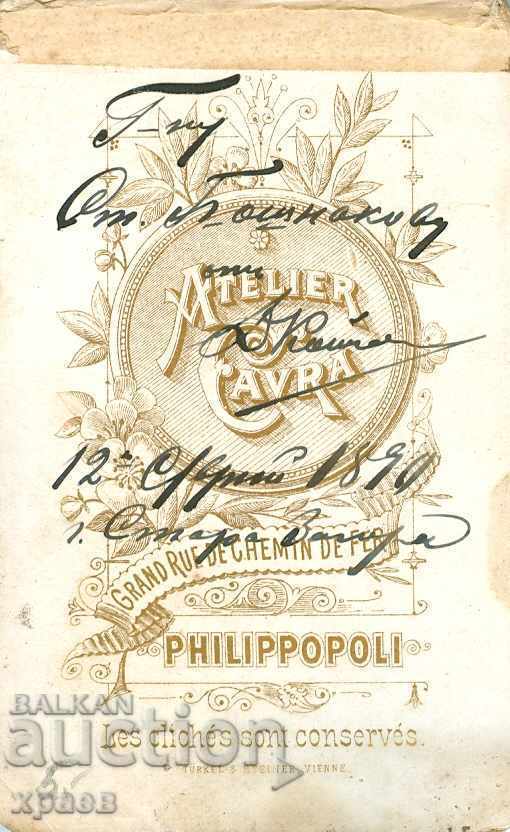 Г-ну
Ст. Пошнакову
отъ
ATELIER
D.
CAVRA
12й 1890
г. Стара Загора
GRAND RUE DE CHEMIN DE FER
PHILIPPOPOLI
Les clichés sont conservés.
TÜRKEL & STEINER, VIENNE
BALKAN
auction
храов